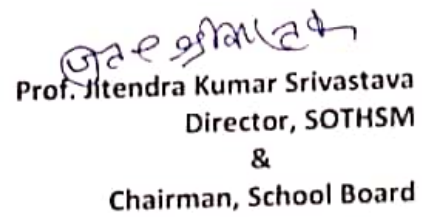 Prof. Jitendra Kumar Srivastava
Director, SOTHSM
&
Chairman, School Board